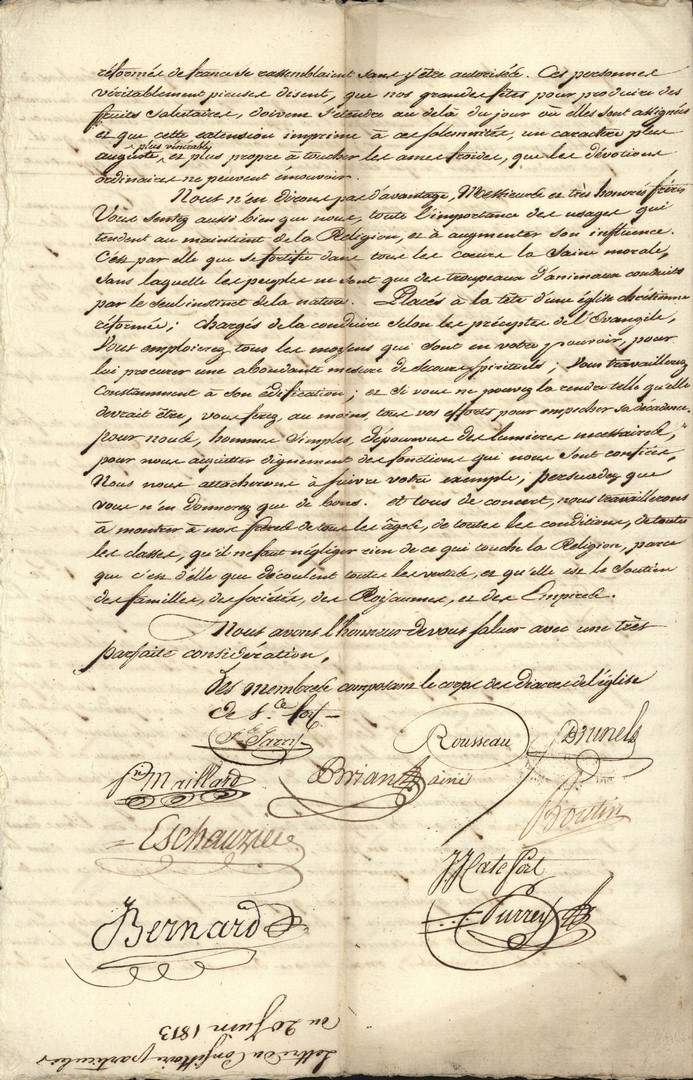 réformés de france se rassemblaient sans y être autorisés. Ces personnes
véritablement pieuses disent, que nos grandes fêtes pour produire des
fruits salutaires, doivent s'etendre au delà du jour où elles sont assignées
et que cette extension imprime à ces solemnités, un caractère plus
plus vénérable
auguste et plus propre à toucher les ames froides, que les dévotions
ordinaires ne peuvent émouvoir.
Nous n'en dirons pas d'avantage, Messieurs et très honorés frères
Vous sentez aussi bien que nous, toute l'importance des usages qui
tendent au maintient de la Religion, et à augmenter son influence.
C'est par elle que se fortifie dans tous les cœurs la saine morale,
sans laquelle les peuples ne sont que des troupeaux d'animaux conduits
par le seul instinct de la nature. Placés à la tête d'une église chrétienne
réformée; chargés de la conduire selon les préceptes de l'Evangile,
vous emploierez tous les moyens qui sont en votre pouvoir, pour
lui procurer une abondante mesure de secours spirituels; vous travaillerez
constamment à son édification; et si vous ne pouvez la rendre telle qu'elle
devrait être, vous ferez, au moins, tous vos efforts pour empecher sa décadence,
pour nous, hommes simples, dépourvus des lumieres necessaires,
pour nous acquitter dignement des fonctions qui nous sont confiées,
Nous nous attacherons à suivre votre exemple, persuadez que
vous n'en donnerez que de bons. et tous de concert, nous travaillerons
à montrer à nos frères de tous les âges, de toutes les conditions, de toutes
les classes, qu'il ne faut négliger rien de ce qui touche la Religion, parce
que c'est d'elle que découlent toutes les vertus, et qu'elle est le soutien
des familles, des sociétés, des Royaumes, et des Empires.
Nous avons l'honneur de vous saluer avec une très
parfaite considération,
Les membres composant le corps des diacres de l'église
de S.te foy
Rousseau
Brunel
Maillard
Briand ainé
Boutin
Eschauzier
Matefort
Bernard
Lettre du Consistoire particulier
du 20 Juin 1813